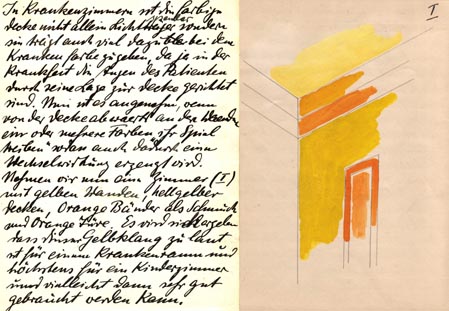 In Krankenzimmern ist die farbige
Decke nicht allein Licht spender sondern
sie trägt auch viel dazu bei dem
Kranken Farbe zu geben. Da ja in der
Krankheit die Augen des Patienten
durch seine Lage zur Decke gerichtet
sind. Nun ist es angenehm, wenn
von der Decke abwärts an den Wänden
ein oder mehrere Farben ihr Spiel
treiben sodass auch dadurch eine
Wechselwirkung erzeugt wird.
Nehmen wir nun ein Zimmer (I)
mit gelben Wänden, hellgelber
Decken, Orange Bänder als Schmuck
und Orange Türe. Es wird sich ergeben
dass dieser Gelbklang zu laut
ist für einen Krankenraum und
höchstens für ein Kinderzimmer
und vielleicht dann sehr gut
gebraucht werden kann.
I